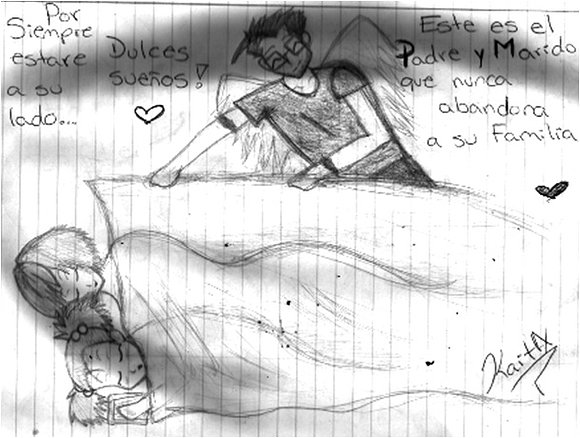 Por
Siempre
estare
a su
lado...
Dulces
sueños!
Este es el
Padre y Marido
que nunca
abandona
a su Familia